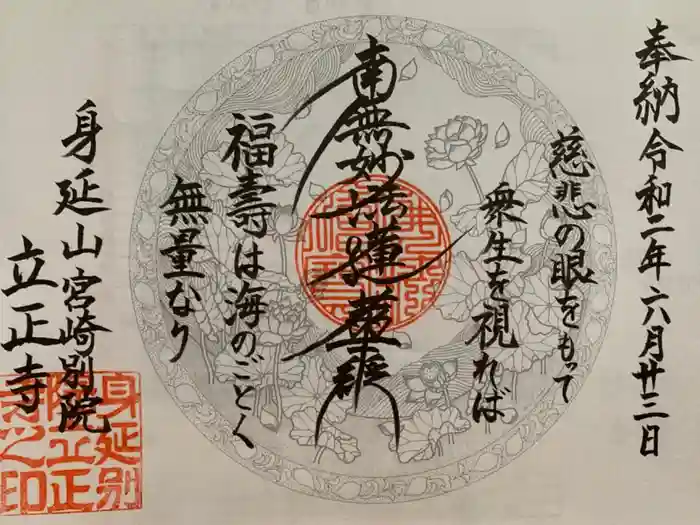 奉納令和二年六月廿三日
慈悲の眼をもって
衆生を視れば
南無妙法蓮華経
福壽は海のごとく
無量なり
身延山宮崎別院
立正寺
身延別
院立正
寺之印